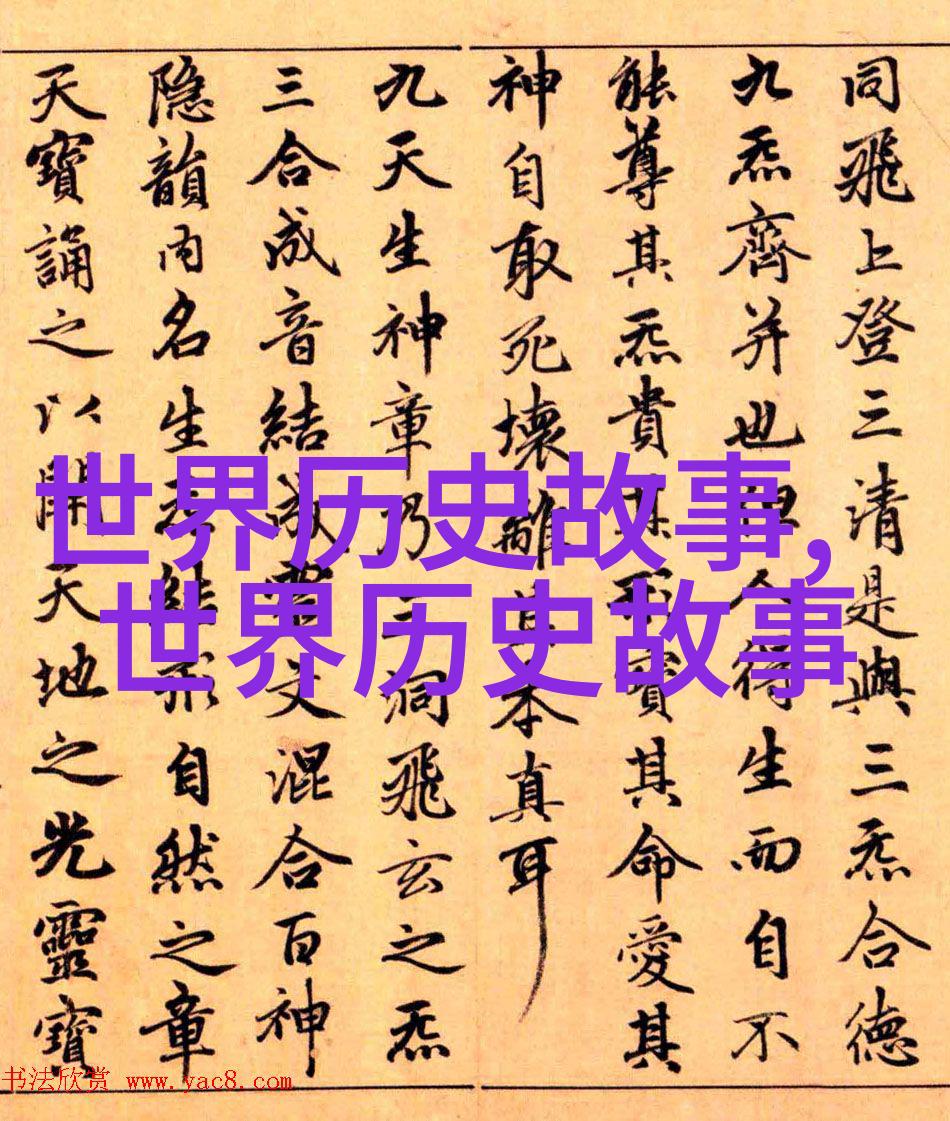 同飛上登三清是與三炁合德
九炁齊并也但人得生而自不
能尊其炁貴其形寶其命愛其
神自取死壞離其本真耳
九天生神章乃三洞飛玄之炁
三合成音結成靈文混合百神
隐韻内名生炁結形自然之章
天寶誦之以開天地之光靈寶
世界历史故事,
世界历史故事
书法欣赏 www.yac8.com